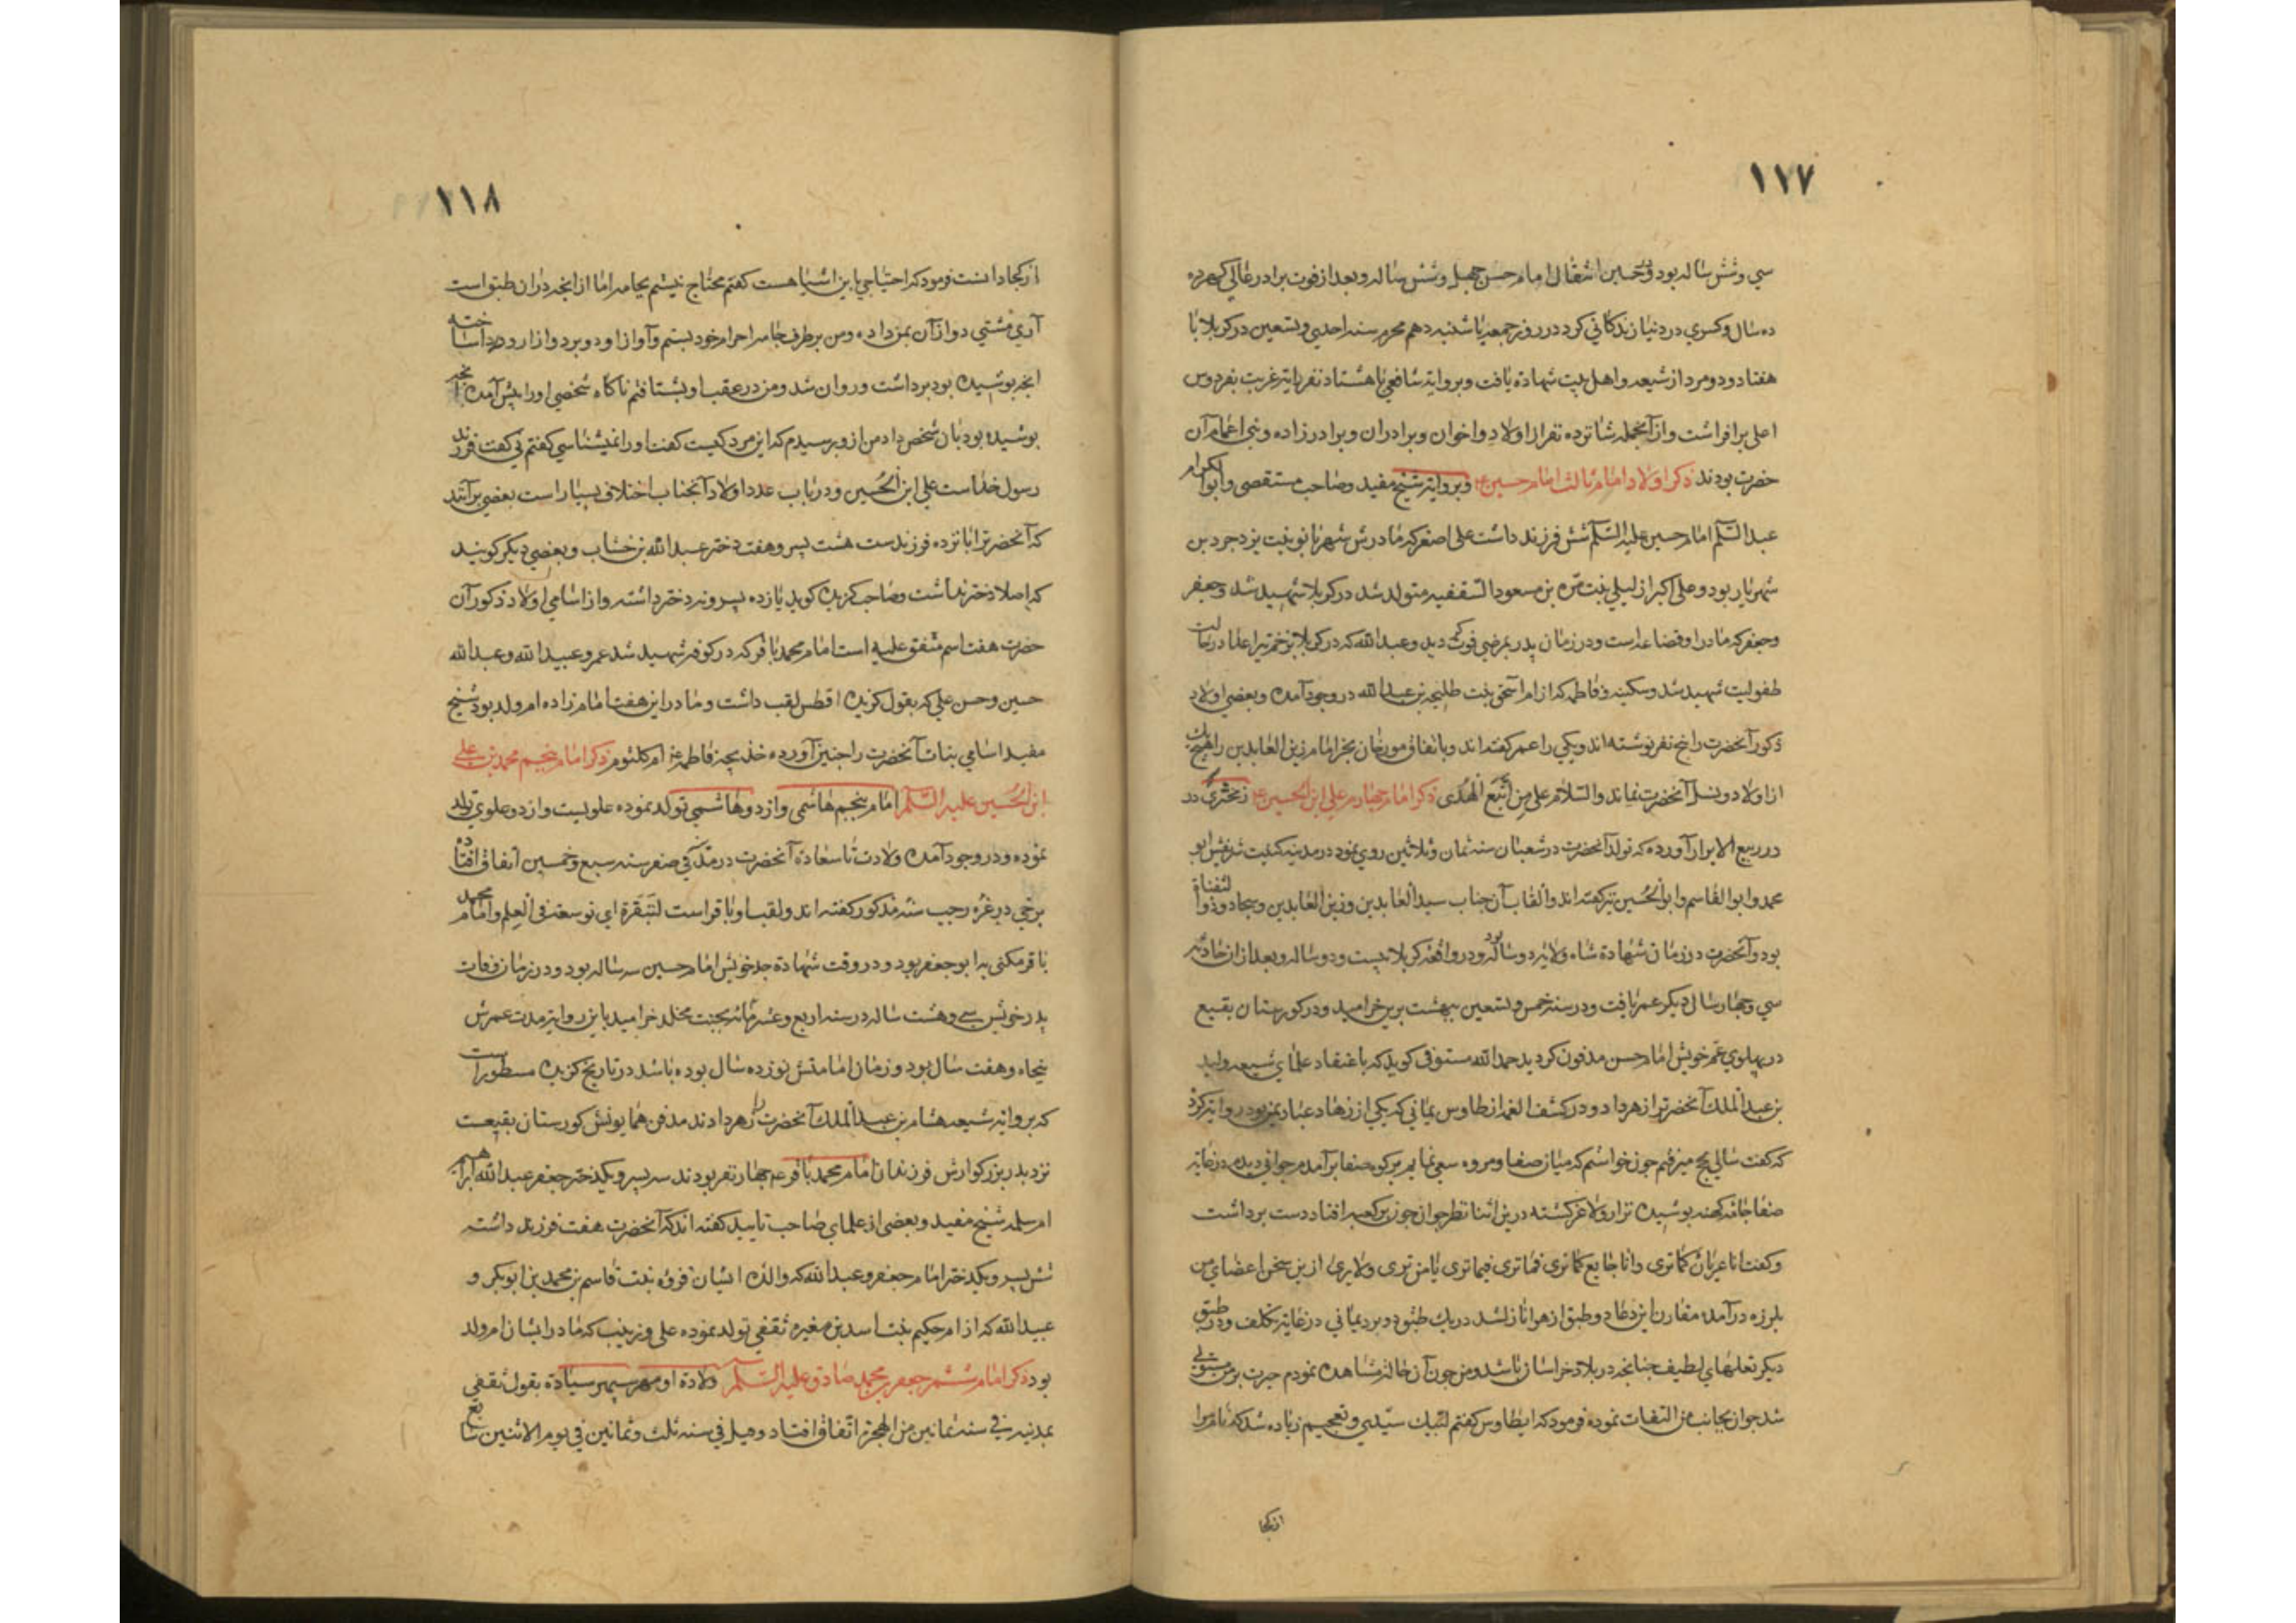 ١١٧
سي وشش ساله بود و در حسين انتقال امام حسن چهل وشش ساله و بعد از فوت برادر عالي كهر ده
ده سال و كسري در دنيا زندكاني كرد در روز جمعه يا شنبه دهم محرم سنه احدي و تسعين در كربلا با
هفتاد و دو مرد از شيعه و اهل بيت شهادة يافت و بروايته شافعي با هشتاد نفر راية غربت بفردوس
اعلي برافراشت و از آنجمله شانزده نفر از اولاد و اخوان و برادران و برادرزاده و بني اعمام آن
حضرت بودند ذكر اولاد امام ثالث امام حسين ع و بروايته شيخ مفيد و صاحب مستقصي و ابوالكرام
عبد السلم امام حسين عليه السلم شش فرزند داشت علي اصغر كه مادرش شهربانو بنت يزدجرد بن
شهريار بود و علي اكبر از ليلي بنت مره بن مسعود الثقفيه متولد شد در كربلا شهيد شد و جعفر
و جعفر كه مادر او قضاعه است و در زمان پدر بمرضي فوت كرديد و عبد الله كه در كربلا بزخم تير اعدا در حالت
طفوليت شهيد شد و سكينه و فاطمه كه از ام اسحق بنت طليحه بن عبد الله در وجود آمده و بعضي اولاد
ذكور آنحضرت را پنج نفر نوشته اند و يكي را عمر كفته اند و باتفاق مورخان بجز امام زين العابدين را هيچ يك
از اولاد و نسل آنحضرت نماند و السلام علي من اتبع الهدي ذكر امام چهارم علي ابن الحسين ع زمخشري در
در ربيع الابرار آورده كه تولد آنحضرت در شعبان سنه ثمان و ثلاثين روي نمود در مدينه كنيت شريفش ابو
محمد و ابو القاسم و ابو الحسين نيز كفته اند و القاب آن جناب سيد العابدين و زين العابدين و سجاد و ذو الثفنات
بود و آنحضرت در زمان شهادة شاه ولايه دو ساله بود و در واقعه كربلا بيست و دو ساله و بعد از ان حادثه
سي و چهار سال ديكر عمر يافت و در سنه خمس و تسعين ببهشت برين خراميد و در كورستان بقيع
در پهلوي عم خويش امام حسن مدفون كرديد حمد الله مستوفي كويد كه باعتقاد علماي شيعه وليد
بن عبد الملك آنحضرترا زهر داد و در كشف الغمه از طاوس يماني كه يكي از زهاد عباد يمن بود روايه كرد
كه كفت سالي بحج ميرفتم چون خواستم كه ميان صفا و مروه سعي نمايم بر كوه صفا برآمدم جواني ديدم در غايه
صفا جامه كهنه پوشيده نزار و لاغر كشته درين اثنا نظر جوان چون بر كعبه افتاد دست برداشت
و كفت انا عريان كما تري و انا جايع كما تري فما تري فيما تري يا من يري و لا يري از ين سخن اعضاي من
بلرزه درآمد مقارن اين دعا دو طبق از هوا نازل شد در يك طبق دو برد يماني در غايه تكلف و در طبق
ديكر نعلهاي لطيف چنانچه در بلاد خراسان باشد و من چون آن حال مشاهده نمودم حيرت بر من مستولي
شد جوان بجانب من التفات نموده فرمود كه ايطاوس كفتم لبيك سيدي و تعجبم زياده شد كه نام مرا
از كجا
١١٨
از كجا دانست فرمود كه احتياجي باين اشيا هست كفتم محتاج نيستم بجامه اما از انچه دران طبق است
آري مشتي دو از آن بمن داد و من بر طرف جامه احرام خود بستم و آواز او دو برد و ازار و ردا ساخته
انچه پوشيده بود برداشت و روان شد و من در عقب او بشتافتم ناكاه شخصي اورا پيش آمد انچه
پوشيده بود بان شخص داد من از و پرسيدم كه اين مرد كيست كفت اورا نميشناسي كفتم ني كفت فرزند
رسول خداست علي ابن الحسين و در باب عدد اولاد آنجناب اختلاف بسيار است بعضي برآنند
كه آنحضرترا پانزده فرزندست هشت پسر و هفت دختر عبد الله بن خشاب و بعضي ديكر كويند
كه اصلا دختر نداشت و صاحب كزيده كويد يازده پسر و نه دختر داشته و از اسامي اولاد ذكور آن
حضرت هفت اسم متفق عليه است امام محمد باقر كه در كوفه شهيد شد عمر و عبيد الله و عبد الله
حسين و حسن علي كه بقول كزيده افطس لقب داشت و مادر اين هفت امام زاده ام ولد بود شيخ
مفيد اسامي بنات آنحضرت را چنين آورده خديجه فاطمه ع ام كلثوم ذكر امام پنجم محمد بن علي
ابن الحسين عليه السلم امام پنجم هاشمي و از دو هاشمي تولد نموده علويست و از دو علوي تولد
نموده و در وجود آمده ولادت با سعادة آنحضرت در مدينه في صفر سنه سبع و خمسين اتفاق افتاده
برخي در غره رجب سنه مذكور كفته اند و لقب او باقر است لتبقرة اي توسعه في العلم و امام محمد
باقر مكني به ابو جعفر بود و در وقت شهادة جد خويش امام حسين سه ساله بود و در زمان وفات
پدر خويش سي و هشت ساله در سنه اربع و عشر مائه بجنت مخلد خراميد باين روايه مدت عمرش
پنجاه و هفت سال بود و زمان امامتش نوزده سال بوده باشد در تاريخ كزيده مسطور است
كه بروايه شيعه هشام بن عبد الملك آنحضرت را زهر دادند مدفن همايونش كورستان بقيعست
نزد پدر بزركوارش فرزندان امام محمد باقر عم چهار نفر بودند سه پسر و يكدختر جعفر عبد الله ابراهيم
ام سلمه شيخ مفيد و بعضي از علماي صاحب تاييد كفته اند كه آنحضرت هفت فرزند داشته
شش پسر و يكدختر امام جعفر و عبد الله كه والده ايشان فروه بنت قاسم بن محمد بن ابو بكر و
عبيد الله كه از ام حكيم بنت اسد بن مغيره ثقفي تولد نموده علي و زينب كه مادر ايشان ام ولد
بود ذكر امام ششم جعفر بن محمد صادق عليه السلم ولادة او مهر سپهر سيادة بقول ثقفي
بمدينه في سنه ثمانين من الهجرة اتفاق افتاد و قيل في سنه ثلث و ثمانين في يوم الاثنين سابع